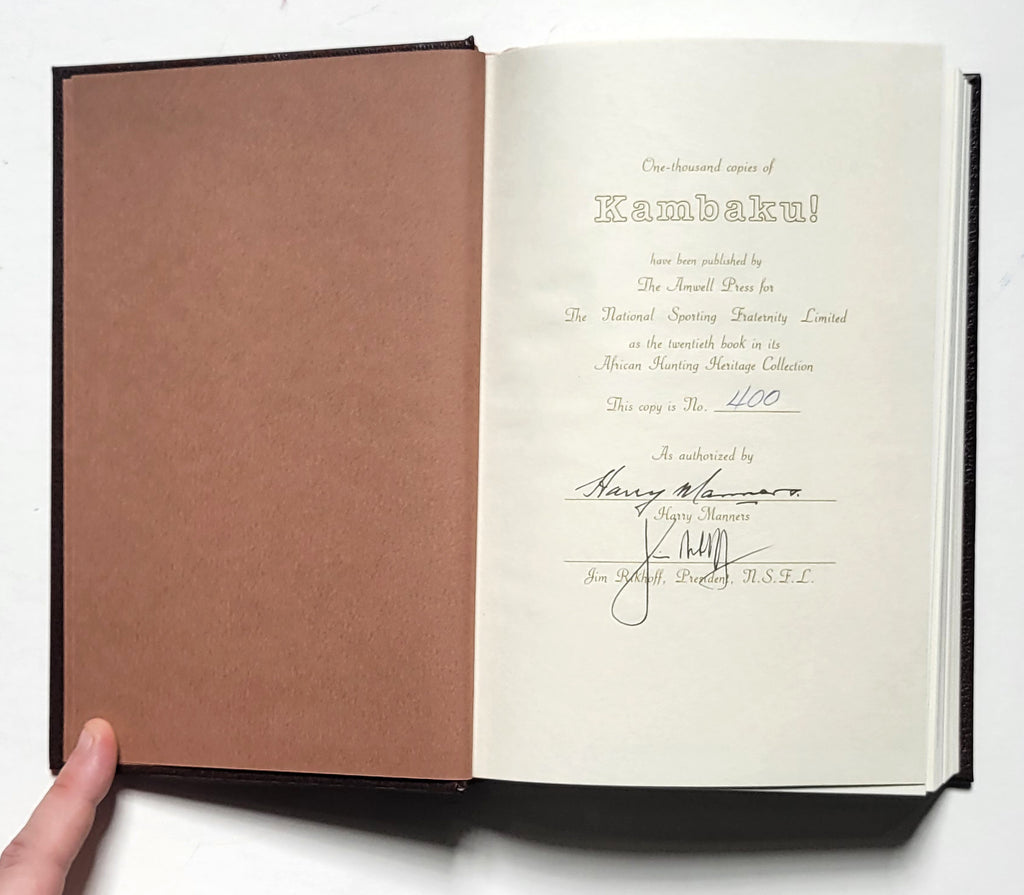 One-thousand copies of
Kambaku!
have been published by
The Amwell Press for
The National Sporting Fraternity Limited
as the twentieth book in its
African Hunting Heritage Collection
This copy is No. 400
As authorized by
Harry Manners
Harry Manners
Jim Rikhoff
Jim Rikhoff, President, N.S.F.L.